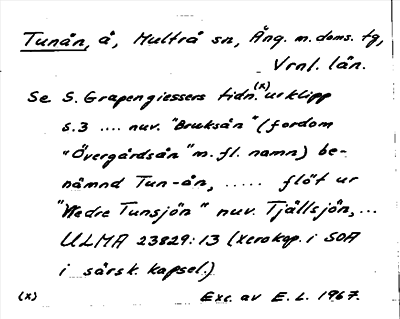 Tunån, å, Multrå sn, Ång. m. doms. tg,
Vrnl. län.
Se S. Grapengiessers tidn.(x)urklipp
s.3 .... nuv. "Bruksån" (fordom
"Övergårdsån" m. fl. namn) be-
nämnd Tun-ån, ..... flöt ur
"Nedre Tunsjön" nuv. Tjällsjön, ...
ULMA 23829:13 (xerokop. i SOA
i särsk. kapsel.)
(x) Exc. av E. L. 1967.